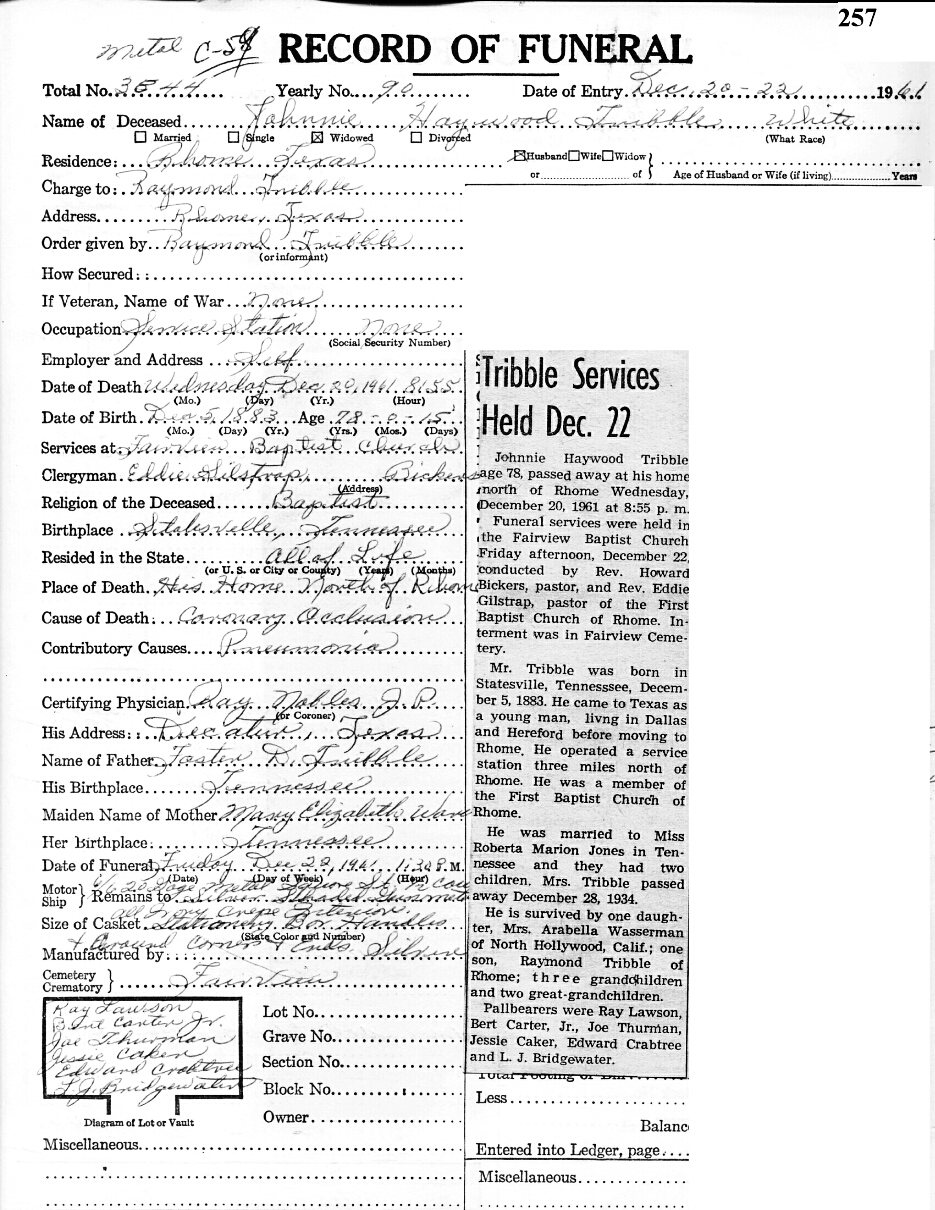 257
Metal C-54
RECORD OF FUNERAL
Total No. 3544 Yearly No. 90 Date of Entry Dec. 20-22 1961
Name of Deceased Johnnie Haywood Tribble White
☐ Married ☐ Single ☒ Widowed ☐ Divorced (What Race)
Residence: Rhome, Texas ☒ Husband ☐ Wife ☐ Widow
or of Age of Husband or Wife (if living) Years
Charge to: Raymond Tribble
Address Rhome, Texas
Order given by Raymond Tribble
(or informant)
How Secured:
If Veteran, Name of War None
Occupation Service Station None
(Social Security Number)
Employer and Address Self
Date of Death Wednesday Dec 20, 1961 8:55
(Mo.) (Day) (Yr.) (Hour)
Date of Birth Dec 5, 1883 Age 78-0-15
(Mo.) (Day) (Yr.) (Yrs.) (Mos.) (Days)
Services at Fairview Baptist Church
Clergyman Eddie Gilstrap, Bickers
(Address)
Religion of the Deceased Baptist
Birthplace Statesville, Tennessee
Resided in the State all of Life
(or U. S. or City or County) (Years) (Months)
Place of Death His Home North of Rhome
Cause of Death: Coronary Occlusion
Contributory Causes Pneumonia
Certifying Physician Ray Nobles J.P.
(or Coroner)
His Address: Decatur, Texas
Name of Father Foster D. Tribble
His Birthplace Tennessee
Maiden Name of Mother Mary Elizabeth
Her Birthplace: Tennessee
Date of Funeral Friday Dec 22, 1961 1:30 P.M.
(Date) (Day of Week) (Hour)
Motor
Ship
6/6 20 Gage Metal
Remains to Silver Shaded
all Ivory Crepe Interior
Size of Casket Stationary Box Handles
(State Color and Number)
Around corners & Ends
Manufactured by:
Cemetery
Crematory Fairview
Ray Lawson
Bert Carter Jr.
Joe Thurman
Jessie Caker
Edward Crabtree
L. J. Bridgewater
Diagram of Lot or Vault
Lot No.
Grave No.
Section No.
Block No.
Owner
Miscellaneous
Tribble Services
Held Dec. 22
Johnnie Haywood Tribble
age 78, passed away at his home
north of Rhome Wednesday,
December 20, 1961 at 8:55 p. m.
Funeral services were held in
the Fairview Baptist Church
Friday afternoon, December 22,
conducted by Rev. Howard
Bickers, pastor, and Rev. Eddie
Gilstrap, pastor of the First
Baptist Church of Rhome. In-
terment was in Fairview Ceme-
tery.
Mr. Tribble was born in
Statesville, Tennesssee, Decem-
ber 5, 1883. He came to Texas as
a young man, livng in Dallas
and Hereford before moving to
Rhome. He operated a service
station three miles north of
Rhome. He was a member of
the First Baptist Church of
Rhome.
He was married to Miss
Roberta Marion Jones in Ten-
nessee and they had two
children. Mrs. Tribble passed
away December 28, 1934.
He is survived by one daugh-
ter, Mrs. Arabella Wasserman
of North Hollywood, Calif.; one
son, Raymond Tribble of
Rhome; three grandchildren
and two great-grandchildren.
Pallbearers were Ray Lawson,
Bert Carter, Jr., Joe Thurman,
Jessie Caker, Edward Crabtree
and L. J. Bridgewater.
Less
Balanc
Entered into Ledger, page
Miscellaneous